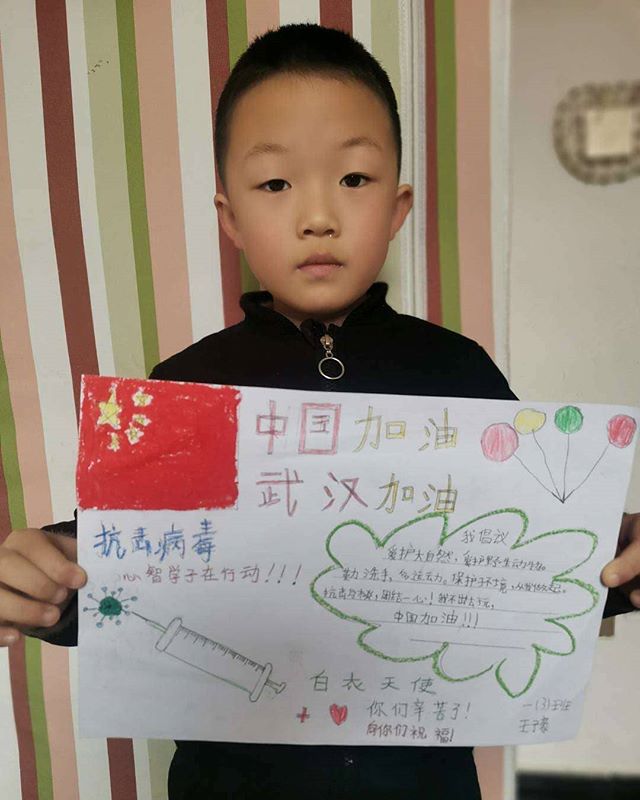 中国加油
武汉加油
抗击病毒
心智学子在行动!!!
我倡议
爱护大自然，爱护野生动物。
勤洗手，多运动。保护环境，从我做起。
抗击与核，团结一心！我不出去玩，
中国加油!!!
白衣天使
你们辛苦了!
向你们祝福!
一(3)班